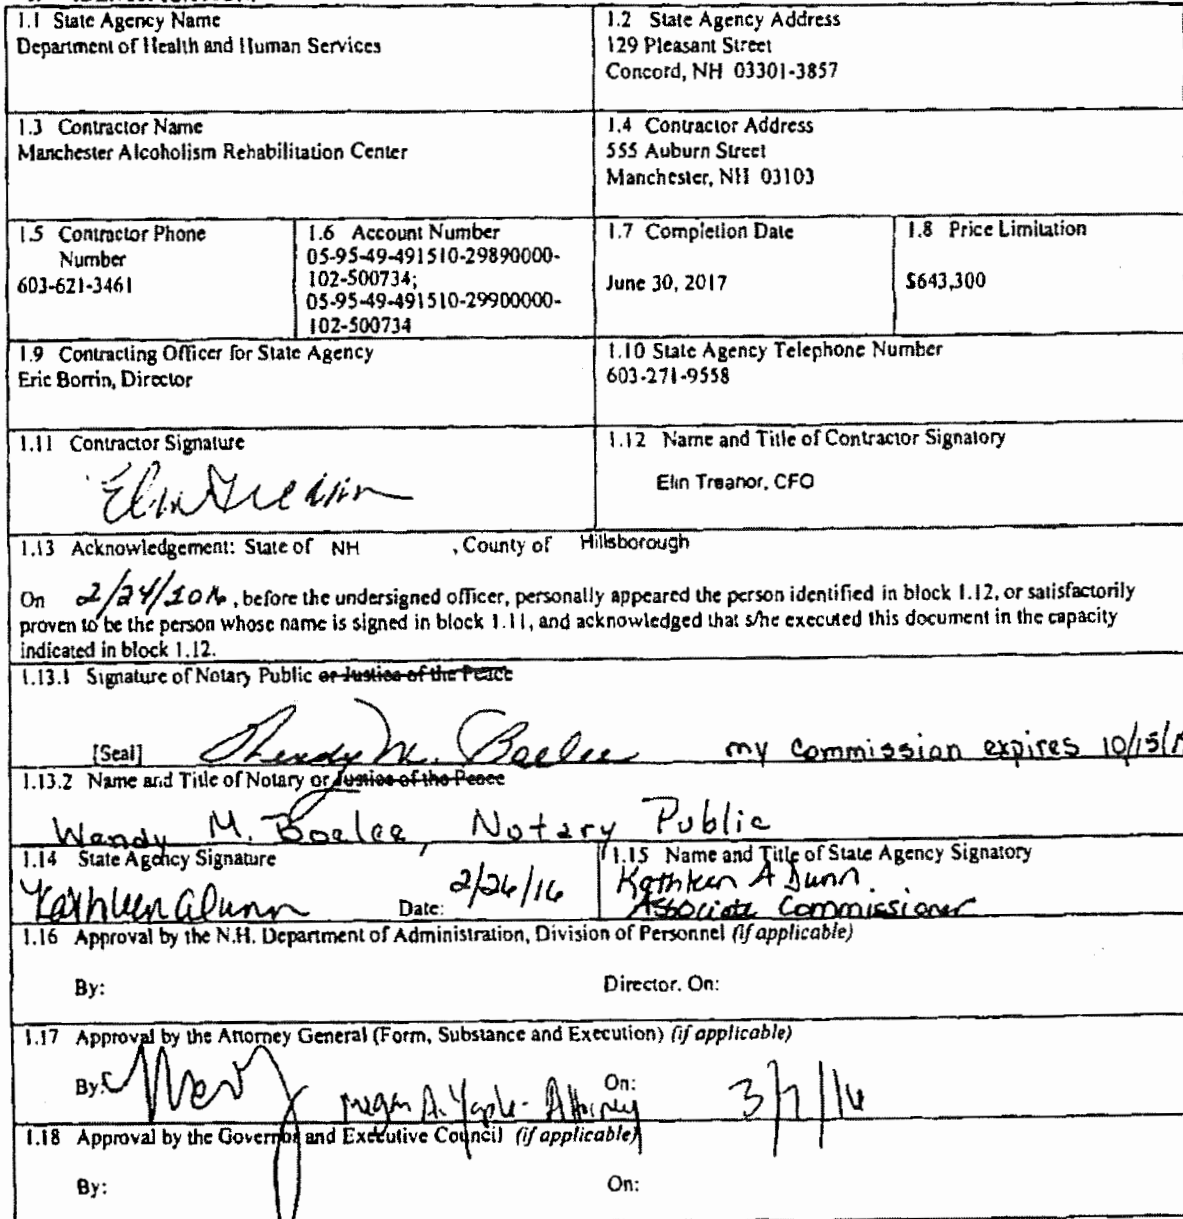 1.1 State Agency Name
Department of Health and Human Services
1.2 State Agency Address
129 Pleasant Street
Concord, NH 03301-3857
1.3 Contractor Name
Manchester Alcoholism Rehabilitation Center
1.4 Contractor Address
555 Auburn Street
Manchester, NH 03103
1.5 Contractor Phone
Number
603-621-3461
1.6 Account Number
05-95-49-491510-29890000-
102-500734;
05-95-49-491510-29900000-
102-500734
1.7 Completion Date
June 30, 2017
1.8 Price Limitation
$643,300
1.9 Contracting Officer for State Agency
Eric Borrin, Director
1.10 State Agency Telephone Number
603-271-9558
1.11 Contractor Signature
Elin Treanor
1.12 Name and Title of Contractor Signatory
Elin Treanor, CFO
1.13 Acknowledgement: State of NH , County of Hillsborough
On 2/24/2016, before the undersigned officer, personally appeared the person identified in block 1.12, or satisfactorily
proven to be the person whose name is signed in block 1.11, and acknowledged that s/he executed this document in the capacity
indicated in block 1.12.
1.13.1 Signature of Notary Public or Justice of the Peace
[Seal] Wendy M. Boelee my commission expires 10/15/
1.13.2 Name and Title of Notary or Justice of the Peace
Wendy M. Boelee, Notary Public
1.14 State Agency Signature
Kathleen A Dunn Date: 2/26/16
1.15 Name and Title of State Agency Signatory
Kathleen A Dunn.
Associate Commissioner
1.16 Approval by the N.H. Department of Administration, Division of Personnel (if applicable)
By: Director, On:
1.17 Approval by the Attorney General (Form, Substance and Execution) (if applicable)
By: Megan A. Yaple - Attorney On: 3/7/16
1.18 Approval by the Governor and Executive Council (if applicable)
By: On: